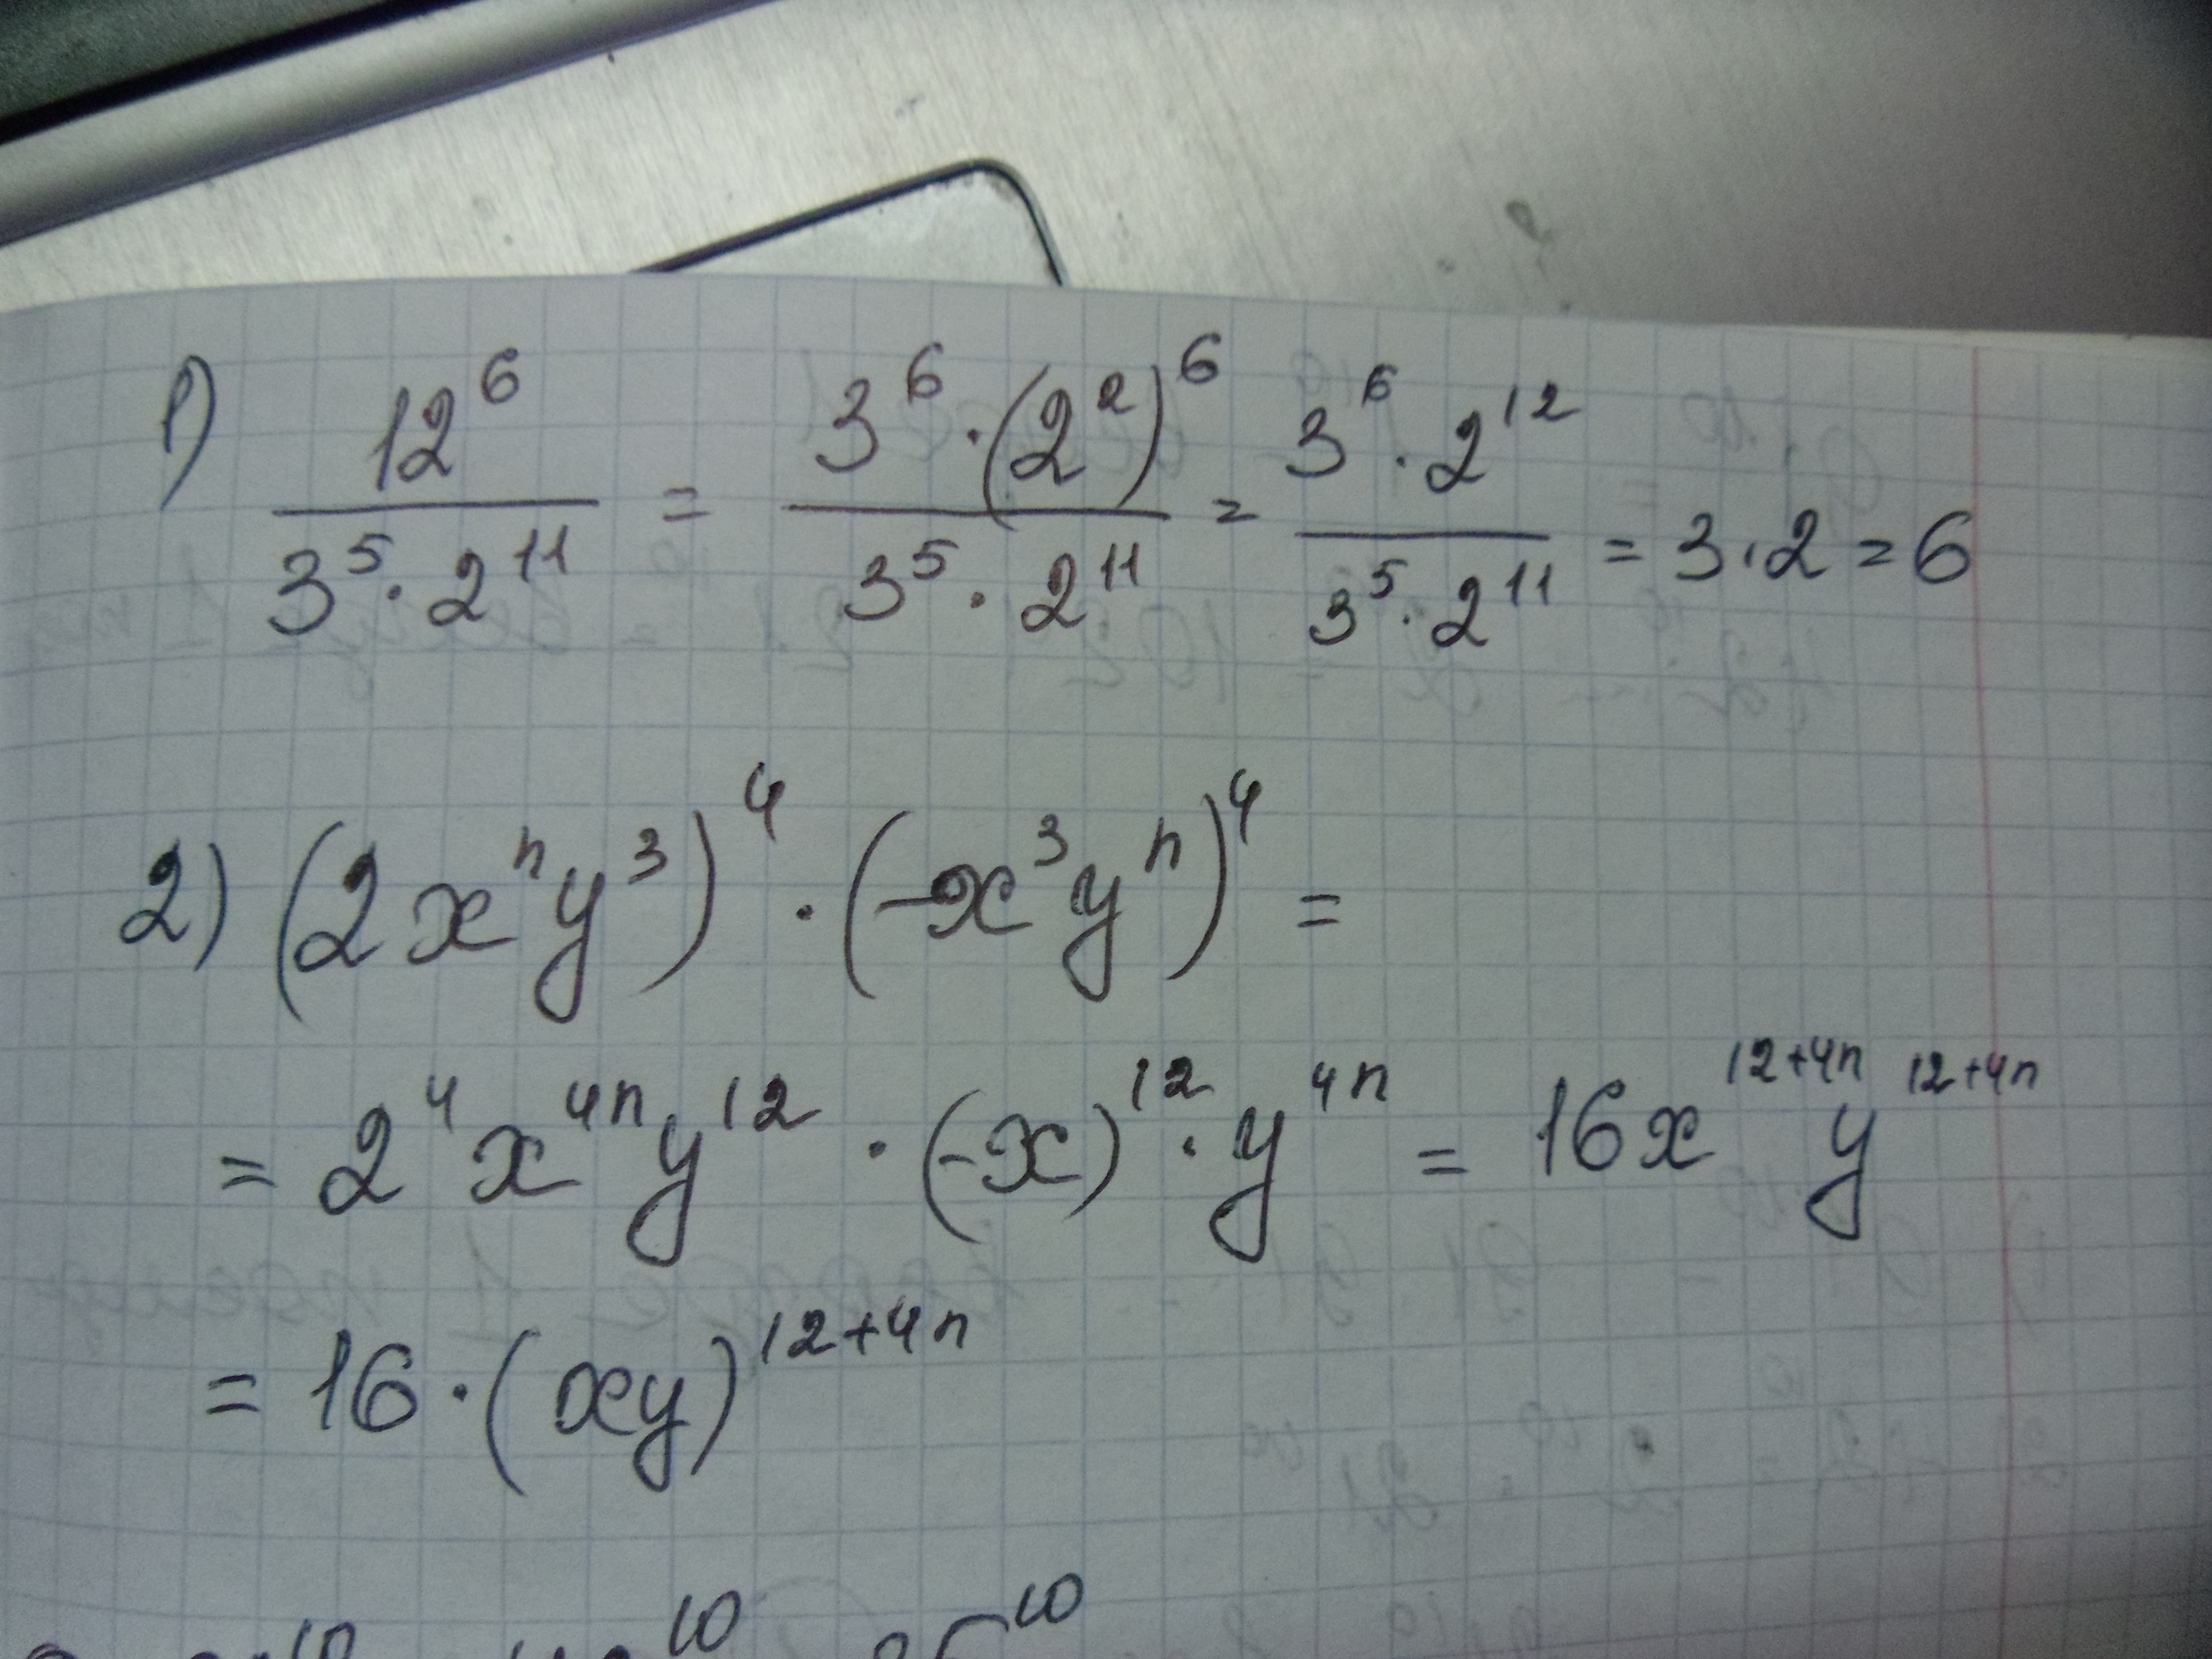 1) 12^6 / (3^5 · 2^11) = 3^6 · (2^2)^6 / (3^5 · 2^11) = 3^6 · 2^12 / (3^5 · 2^11) = 3 · 2 = 6
2) (2x^n y^3)^4 · (-x^3 y^n)^4 =
= 2^4 x^4n y^12 · (-x)^12 · y^4n = 16x^12+4n y^12+4n
= 16 · (xy)^12+4n